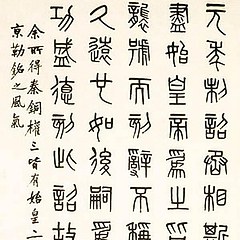 元年制詔丞相斯
盡始皇帝爲之皆
襲號而刻辭不稱
久遠也如後嗣爲
功盛德刻此詔故
余所得秦銅權三皆有始皇二
京勒銘之風氣